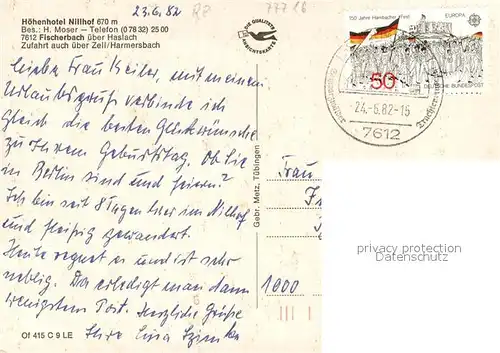 23.6.82
Höhenhotel Nillhof 670 m
Bes.: H. Moser – Telefon (078 32) 25 00
7612 Fischerbach über Haslach
Zufahrt auch über Zell/Harmersbach
DIE QUALITÄTS
ANSICHTSKARTE
150 Jahre Hambacher Fest
EUROPA
50
DEUTSCHE BUNDESPOST
24.-6.82-15
7612
Liebe Frau Keiler, mit meinem
Urlaubsgruß verbinde ich
gleich die besten Glückwünsche
zu Ihrem Geburtstag. Ob Sie
in Berlin sind und feiern?
Ich bin seit 8 Tagen hier im Nillhof
und fleißig gewandert.
Heute regnet es und ist sehr
neblig. Da erledigt man dann
wenigstens Post. Herzliche Grüße
Ihre
Gebr. Metz, Tübingen
Frau
1000
privacy protection
Of 415 C 9 LE